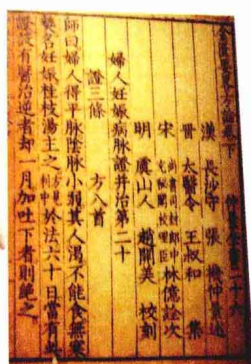 金匱要略方論卷下
仲景全書二十六
漢 長沙守 張 機仲景述
晉 太醫令 王叔和 集
宋 尚書司封郎中
充秘閣校理臣
林億詮次
明 虞山人 趙開美 校刻
婦人妊娠病脈證并治第二十
證三條 方八首
師曰婦人得平脈陰脈小弱其人渴不能食無寒
熱名妊娠桂枝湯主之
於法六十日當有此
證設有醫治逆者却一月加吐下者則絕之